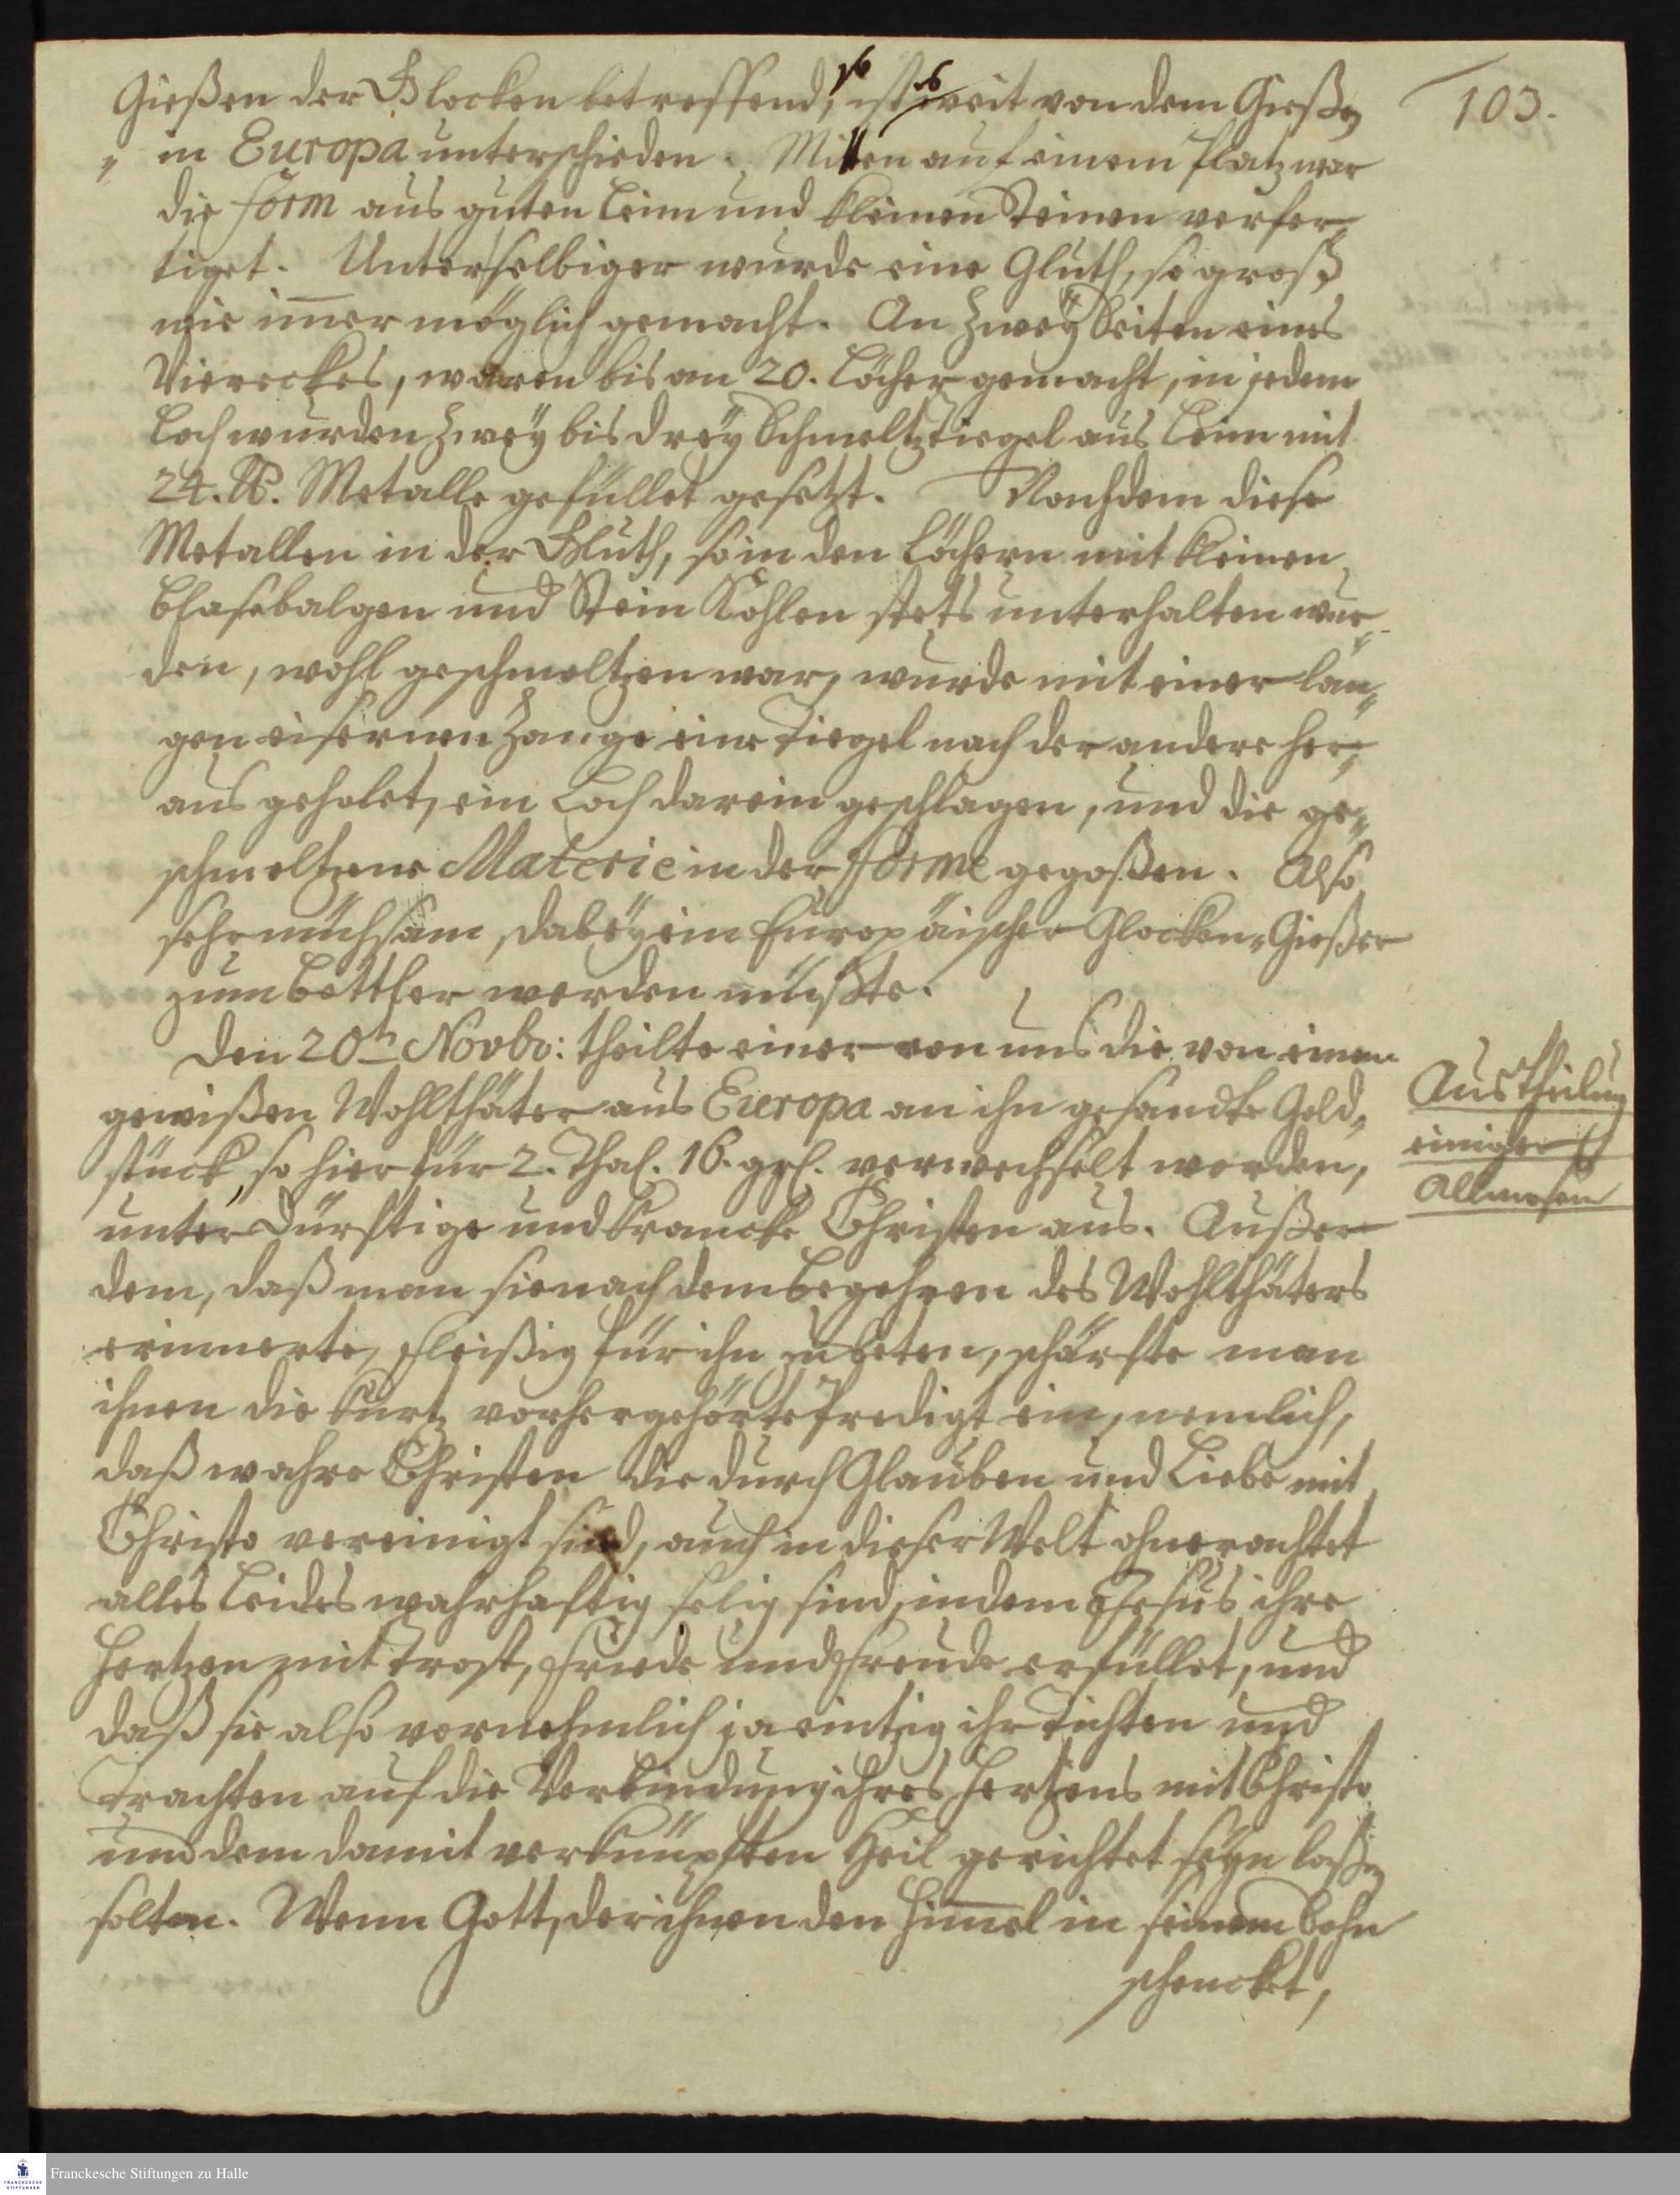 103.
Gießen der Glocken betreffend, so ist es weit von dem Gießen
in Europa unterschieden. Mitten auf einem Platz war
die form aus guten Leim und kleinen Steinen verfer-
tiget. Unter selbiger wurde eine Gluth, so groß
wie im̅er möglich gemacht. An zweÿ Seiten eines
Viereckes, waren bis an 20. Löcher gemacht, in jedem
Loch wurden zweÿ bis dreÿ Schmeltztiegel aus Leim mit
24. ℔. Metalle gefüllet gesetzt. Nachdem diese
Metallen in der Gluth, so in den Löchern mit kleinen
Blasebalgen und Stein Kohlen stets unterhalten wur-
den, wohl geschmeltzen war, wurde mit einer lan-
gen eisernen Zange eine Tiegel nach der andere her-
aus geholet, ein Loch darein geschlagen, und die ge-
schmeltzene Materie in der forme gegoßen. Also
sehr mühsam, dabeÿ ein Europäischer Glocken-Gießer
zum Bettler werden müßte.
Den 20n Novbr: theilte einer von uns die von einem
gewißen Wohlthäter aus Europa an ihn gesandte Gold-
stück, so hier für 2. Thal. 16. grl. verwechselt worden,
unter Dürftige und krancke Christen aus. Außer
dem, daß man sie nach dem Begehren des Wohlthäters
erinnerte, fleißig für ihn zu beten, schärfte man
ihnen die kurtz vorhergehörte Predigt ein, nemlich,
daß wahre Christen die durch Glauben und Liebe mit
Christo vereinigt sind, auch in dieser Welt ohnerachtet
alles Leides wahrhaftig selig sind, indem Jesus ihre
Hertzen mit Trost, Friede und Freude erfüllet, und
daß sie also vornehmlich ja eintzig ihr Tichten und
Trachten auf die Verbindung ihres Hertzens mit Christo
und dem damit verknüpften Heil gerichtet seÿn laßen
solten. Wenn Gott, der ihnen den Him̅el in seinem Sohn
schencket,
Austheilung
einiger
Allmosen
Franckesche Stiftungen zu Halle